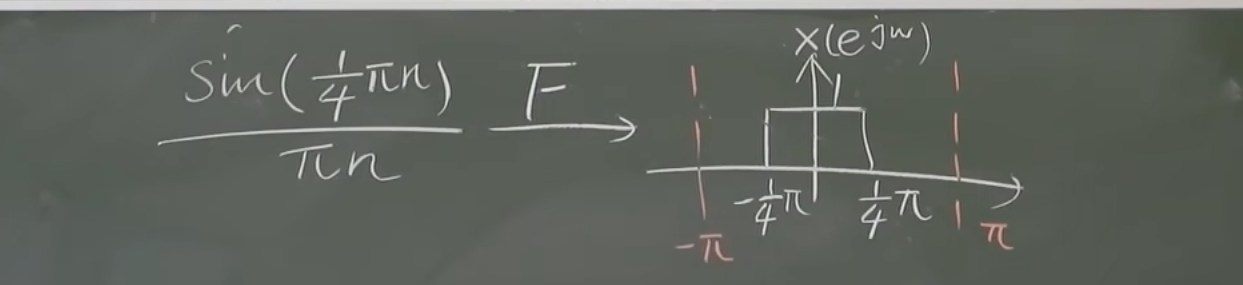 sin(1/4 πn)
πn
F
X(e^jw)
1
-1/4 π
1/4 π
-π
π